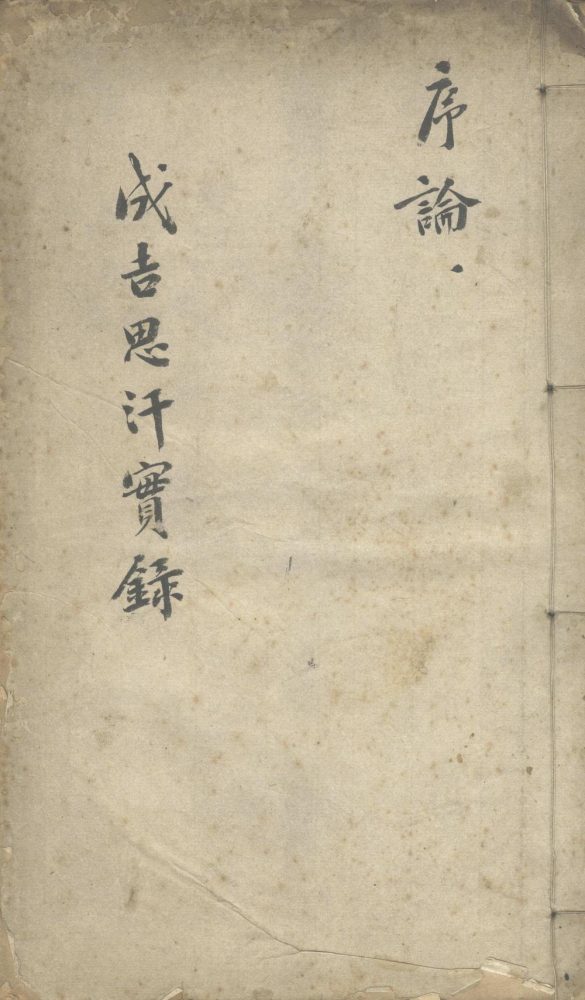 序論.
成吉思汗實錄